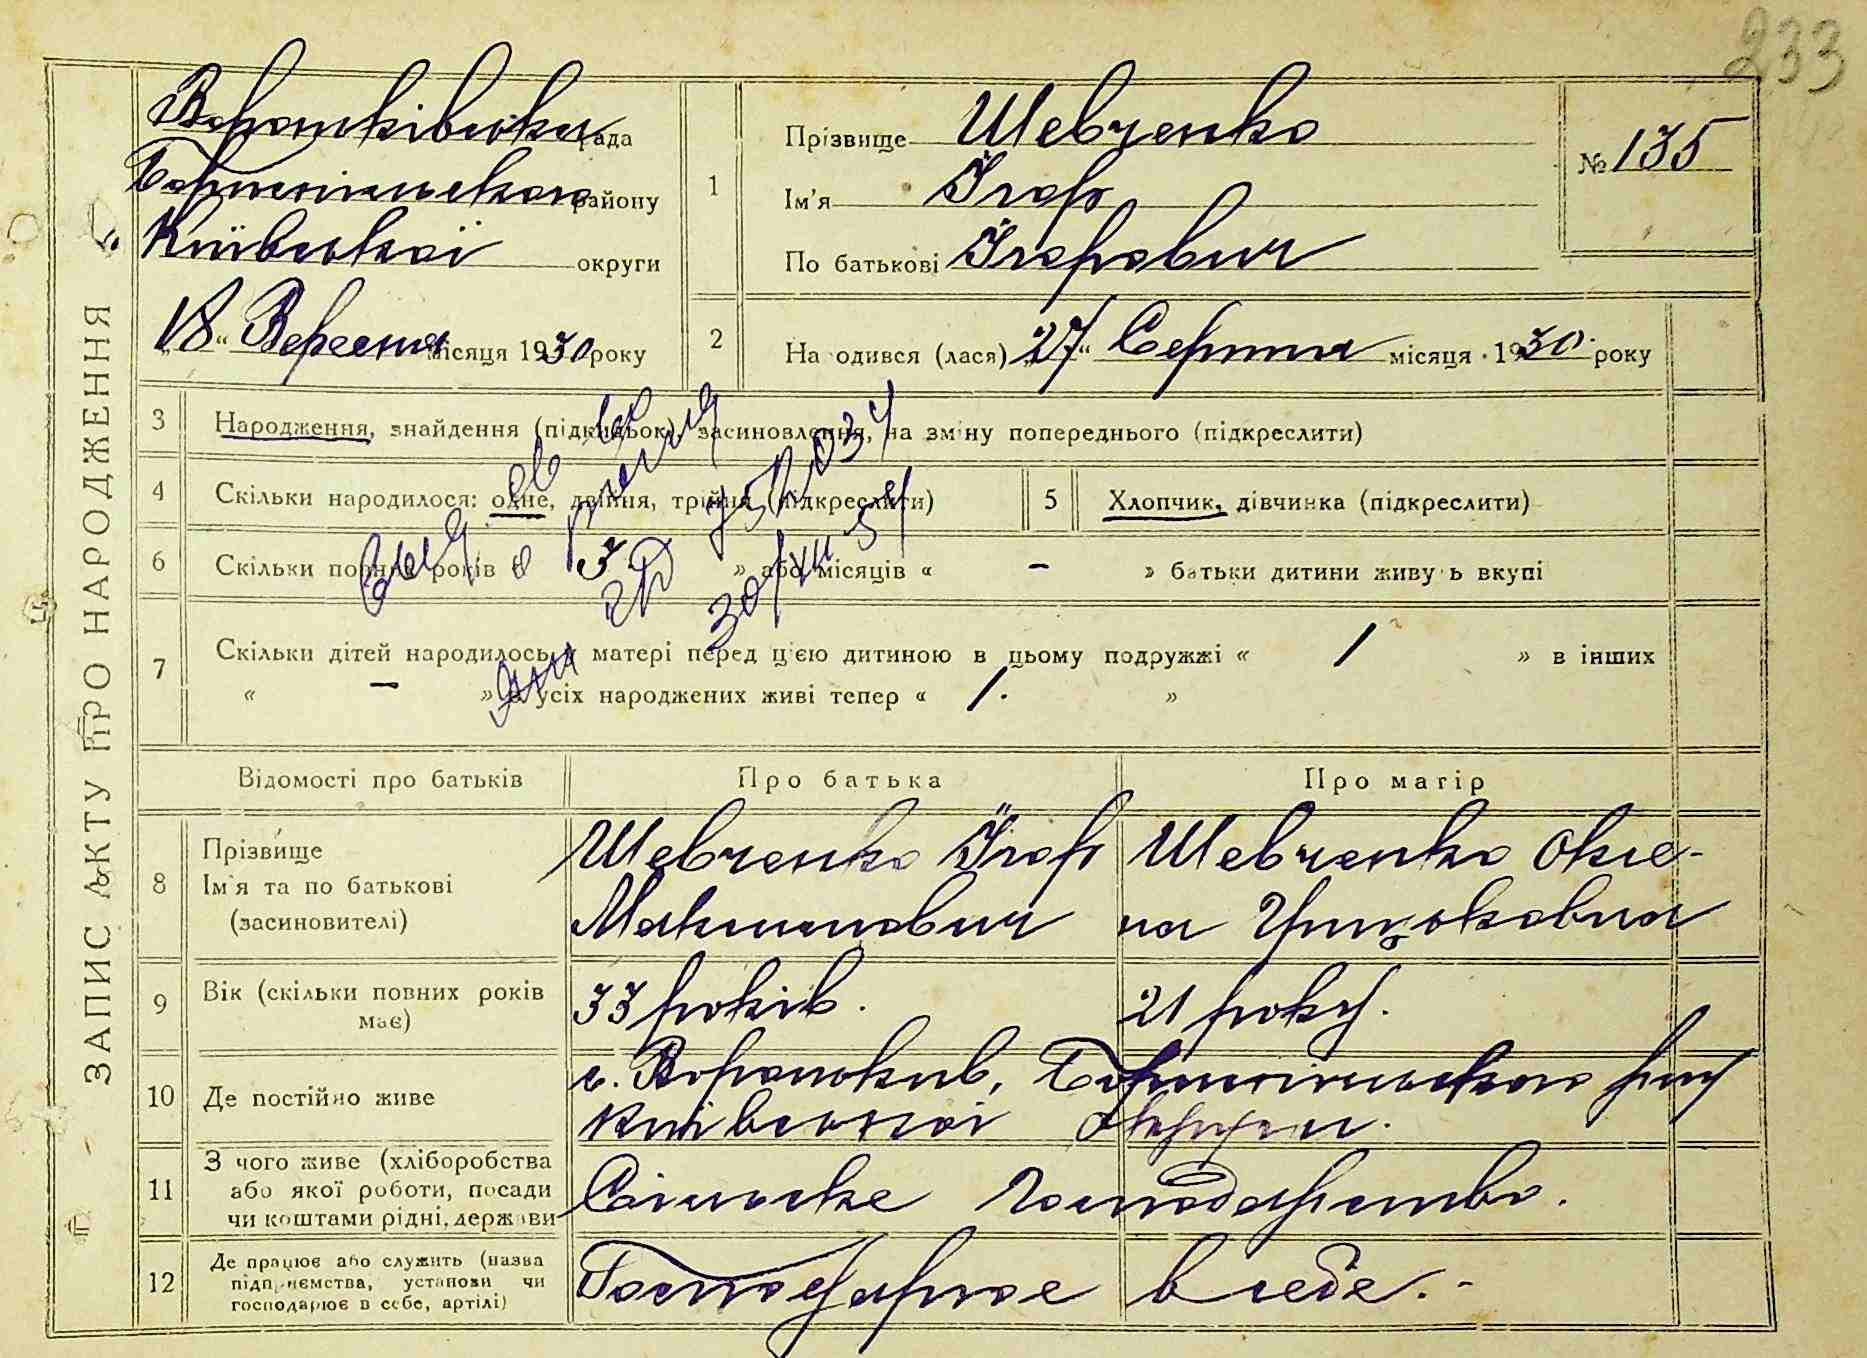 233
ЗАПИС АКТУ ПРО НАРОДЖЕННЯ
Вороньківська рада
Бориспільського району
Київської округи
"18" Вересня місяця 1930 року
1 Прізвище Шевченко
Ім'я Ігор
По батькові Ігорович
№ 135
2 На одився (лася) "27" Серпня місяця 1930 року
3 Народження, знайдення (підкидьок), засиновлення, на зміну попереднього (підкреслити)
4 Скільки народилося: одне, двійня, трійня (підкреслити)
5 Хлопчик, дівчинка (підкреслити)
6 Скільки повних років « 3 » або місяців « - » батьки дитини живуть вкупі
7 Скільки дітей народилось у матері перед цією дитиною в цьому подружжі « 1 » в інших
« - » з усіх народжених живі тепер « 1. »
Відомості про батьків
Про батька
Про матір
8 Прізвище
Ім'я та по батькові
(засиновителі)
Шевченко Ігор
Макимович
Шевченко Окие-
на
9 Вік (скільки повних років
має)
33 років.
21 року.
10 Де постійно живе
с. Вороньків, Бориспільського рну
Київської округи.
11 З чого живе (хліборобства
або якої роботи, посади
чи коштами рідні, держави
Сільське господарство.
12 Де працює або служить (назва
підприємства, установи чи
господарює в себе, артілі)
Господарює в себе.-